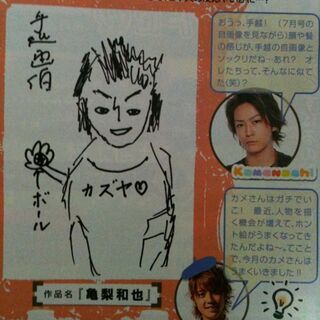 おうっ、手越! (7月号の
自画像を見ながら)顔や髪
の感じが、手越の自画像と
ソックリだね～あれ? オ
レたちって、そんなに似て
た(笑)?
Kamenashi
手越画伯
カズヤ♡
ボール
カメさんはガチでい
こ! 最近、人物を描
く機会が増えて、ホン
ト絵がうまくなってき
たんだよね～。てこと
で、今月のカメさんは
うまくいきました!!
作品名『亀梨和也』